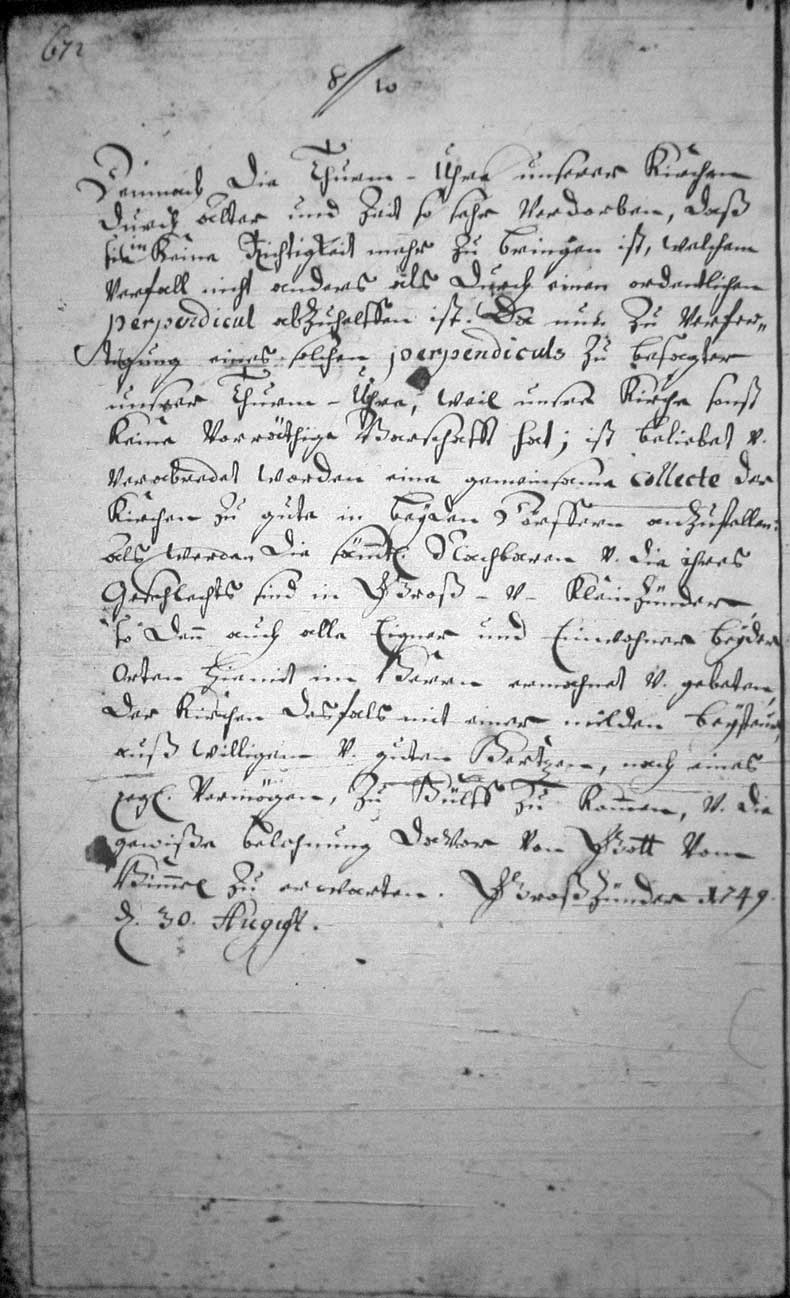 672
8/10
Demnach die Thurm-Uhre unserer Kirchen
durch alter und Zeit so sehr verdorben, daß
sie in keine Richtigkeit mehr zu bringen ist, welchem
verfall nicht anders als durch einen ordentlichen
perpendicul abzuhelffen ist. Da nun zu verfer„
tigung eines solchen perpendiculs zu besagter
unserer Thurm-Uhre, weil unsere Kirche sonst
keine vorräthige Barschafft hat; ist beliebet v.
verabredet worden eine gemeinsame collecte der
Kirchen zu gute in beyden Dörffern anzustellen:
als werden die sämtl. Nachbaren v. die ihres
Geschlechts sind in Groß- v- Kleinzünder
so denn auch alle Eigner und Einwohner beyder
Orten hiemit im Herrn ermahnet v. gebeten,
der Kirchen desfals mit einer milden beysteur,
auß willigem v. guten Hertzen, nach eines
jegl. Vermögen, zu Hülff zu kommen, v. die
gewiße belohnung davor von Gott vom
Himmel zu erwarten. Großzünder 1749.
d. 30. August.